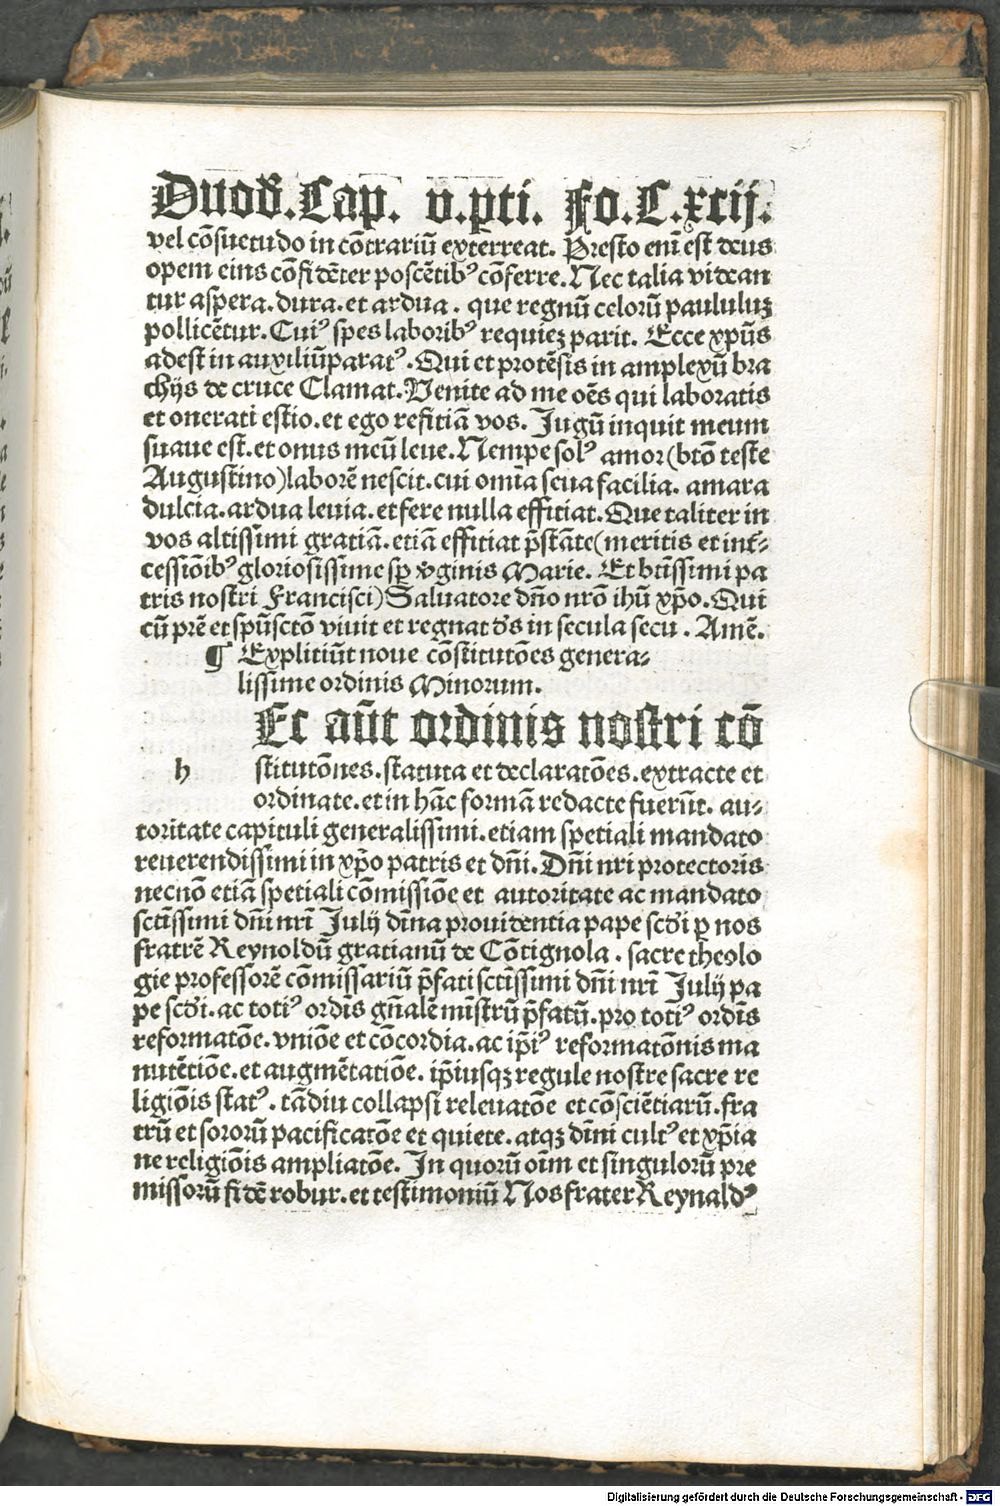 Duod̃. Cap. v. p̱ti. Fo. C. xcij.
vel cõsuetudo in cõtrariũ exterreat. Presto enĩ est deus
opem eius cõfidẽter poscẽtibꝰ cõferre. Nec talia videan
tur aspera. dura. et ardua. que regnũ celorũ paululuꝫ
pollicẽtur. Cuiꝰ spes laboribꝰ requieꝫ parit. Ecce xp̃us
adest in auxiliũ paratꝰ. Qui et protẽsis in amplexũ bra
chijs de cruce Clamat. Venite ad me oẽs qui laboratis
et onerati estio. et ego refitiã vos. Jugũ inquit meum
suaue est. et onus meũ leue. Nempe solꝰ amor (btõ teste
Augustino) laborẽ nescit. cui omĩa seua facilia. amara
dulcia. ardua leuia. et fere nulla effitiat. Que taliter in
vos altissimi gratiã. etiã effitiat p̃stãte (meritis et int̃⸗
cessiõibꝰ gloriosissime sp̱ v̾ginis Marie. Et btĩssimi pa
tris nostri Francisci) Saluatore dñO nrõ ihũ xp̃o. Qui
cũ prẽ et spũsctõ viuit et regnat d̾s in secula secu. Amẽ.
¶ Explitiũt noue cõstitutões genera⸗
lissime ordinis Minorum.
Ec aũt ordinis nostri cõ
h stitutõnes. statuta et declaratões. extracte et
ordinate. et in hãc formã redacte fuerũt. au⸗
toritate capituli generalissimi. etiam spetiali mandato
reuerendissimi in xp̃o patris et dñi. Dñi nri protectoris
necnõ etiã spetiali cõmissiõe et autoritate ac mandato
sctĩssimi dñi nrĩ Julij diĩna prouidentia pape scd̾i ꝑ nos
fratrẽ Reynoldũ gratianũ de Cõtignola. sacre theolo
gie professorẽ cõmissariũ p̃fati sctĩssimi dñi nrĩ Julij pa
pe scd̾i. ac totiꝰ ordĩs gñalẽ mĩstrũ p̃fatũ. pro totiꝰ ordĩs
reformatõe. vniõe et cõcordia. ac ip̃iꝰ reformatõnis ma
nutẽtiõe. et augmẽtatiõe. ip̃iusqꝫ regule nostre sacre re
ligiõis statꝰ. tãdiu collapsi releuatõe et cõsciẽtiarũ. fra
trũ et sororũ pacificatõe et quiete. atqꝫ diĩni cultꝰ et xp̃ia
ne religiõis ampliatõe. In quorũ oĩm et singulorũ pre
missorũ fidẽ robur. et testimoniũ Nos frater Reynaldꝰ
Digitalisierung gefördert durch die Deutsche Forschungsgemeinschaft - DFG